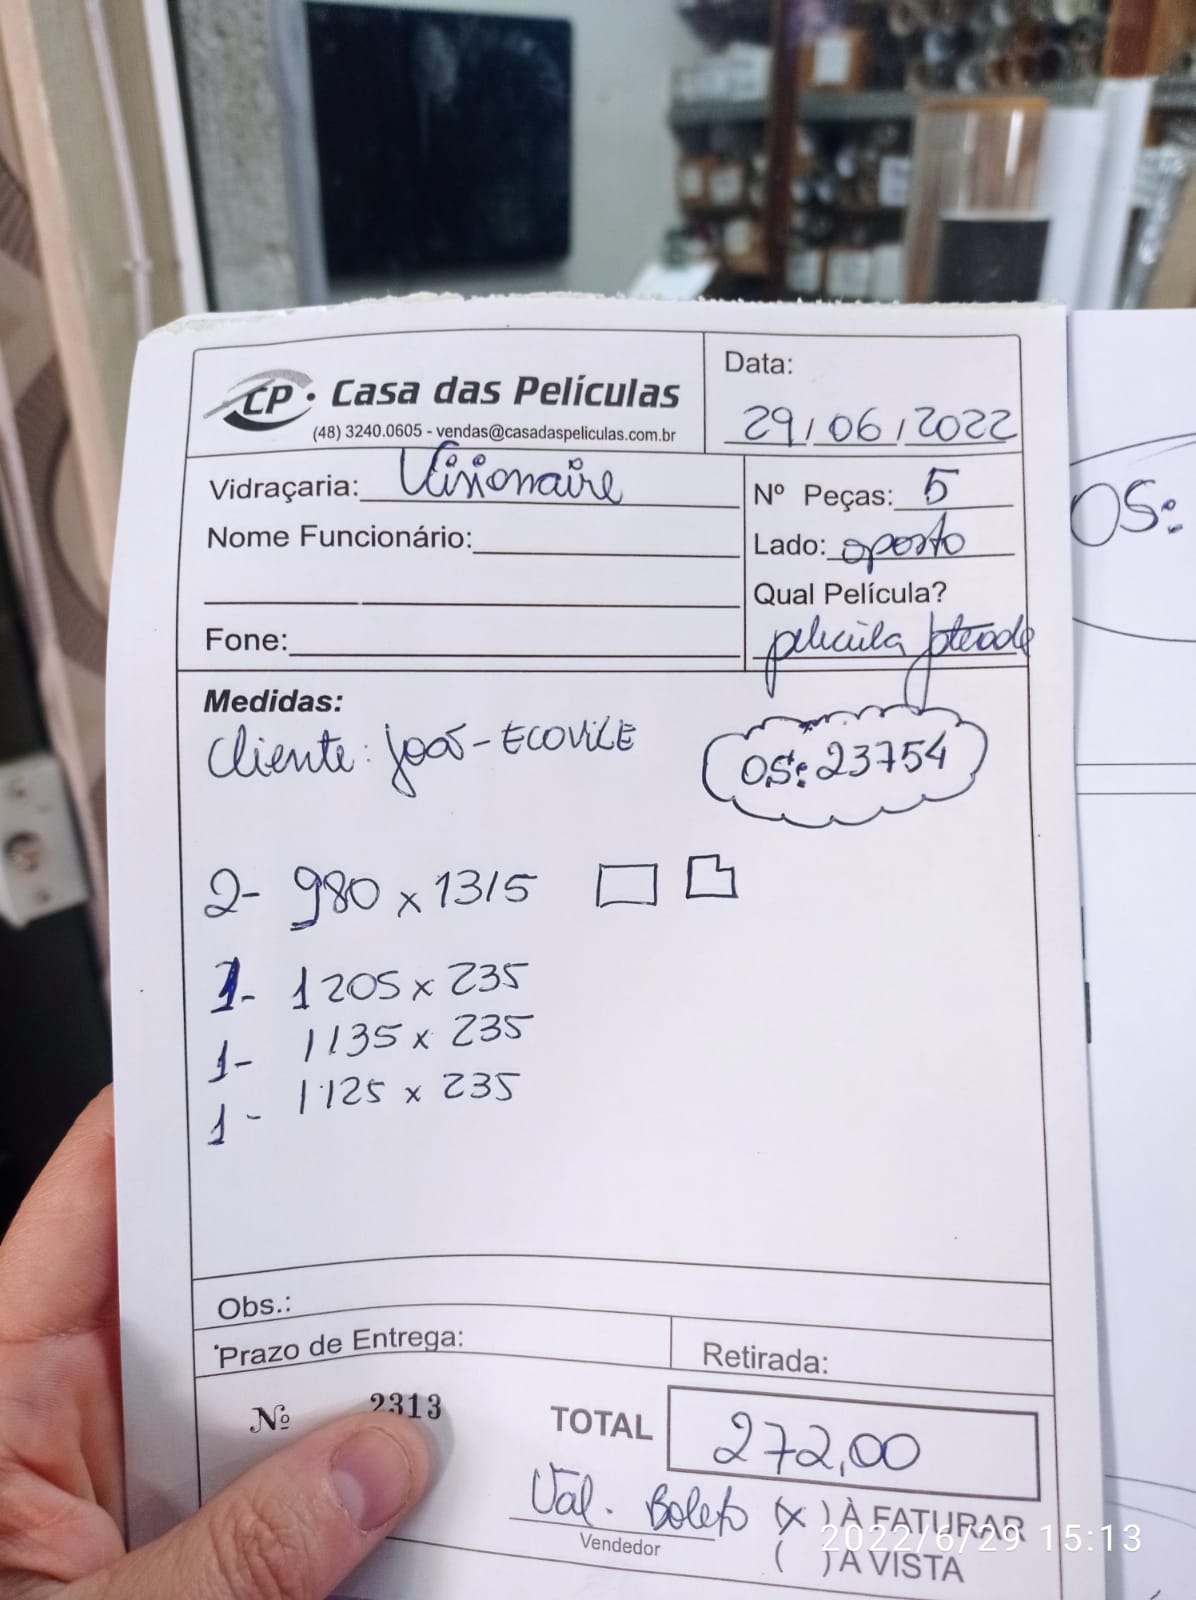 CP • Casa das Películas
(48) 3240.0605 - vendas@casadaspeliculas.com.br
Data:
29/06/2022
Vidraçaria: Visionaire
Nº Peças: 5
Nome Funcionário:
Lado: oposto
Qual Película?
Fone:
película jateada
Medidas:
Cliente: João - ECOVILE
OS: 23754
OS:
2- 980 x 1315
1- 1205 x 235
1- 1135 x 235
1- 1125 x 235
Obs.:
Prazo de Entrega:
Retirada:
Nº 2313
TOTAL 272,00
Val. Boleto (x) À FATURAR
Vendedor
( ) À VISTA
2022/6/29 15:13